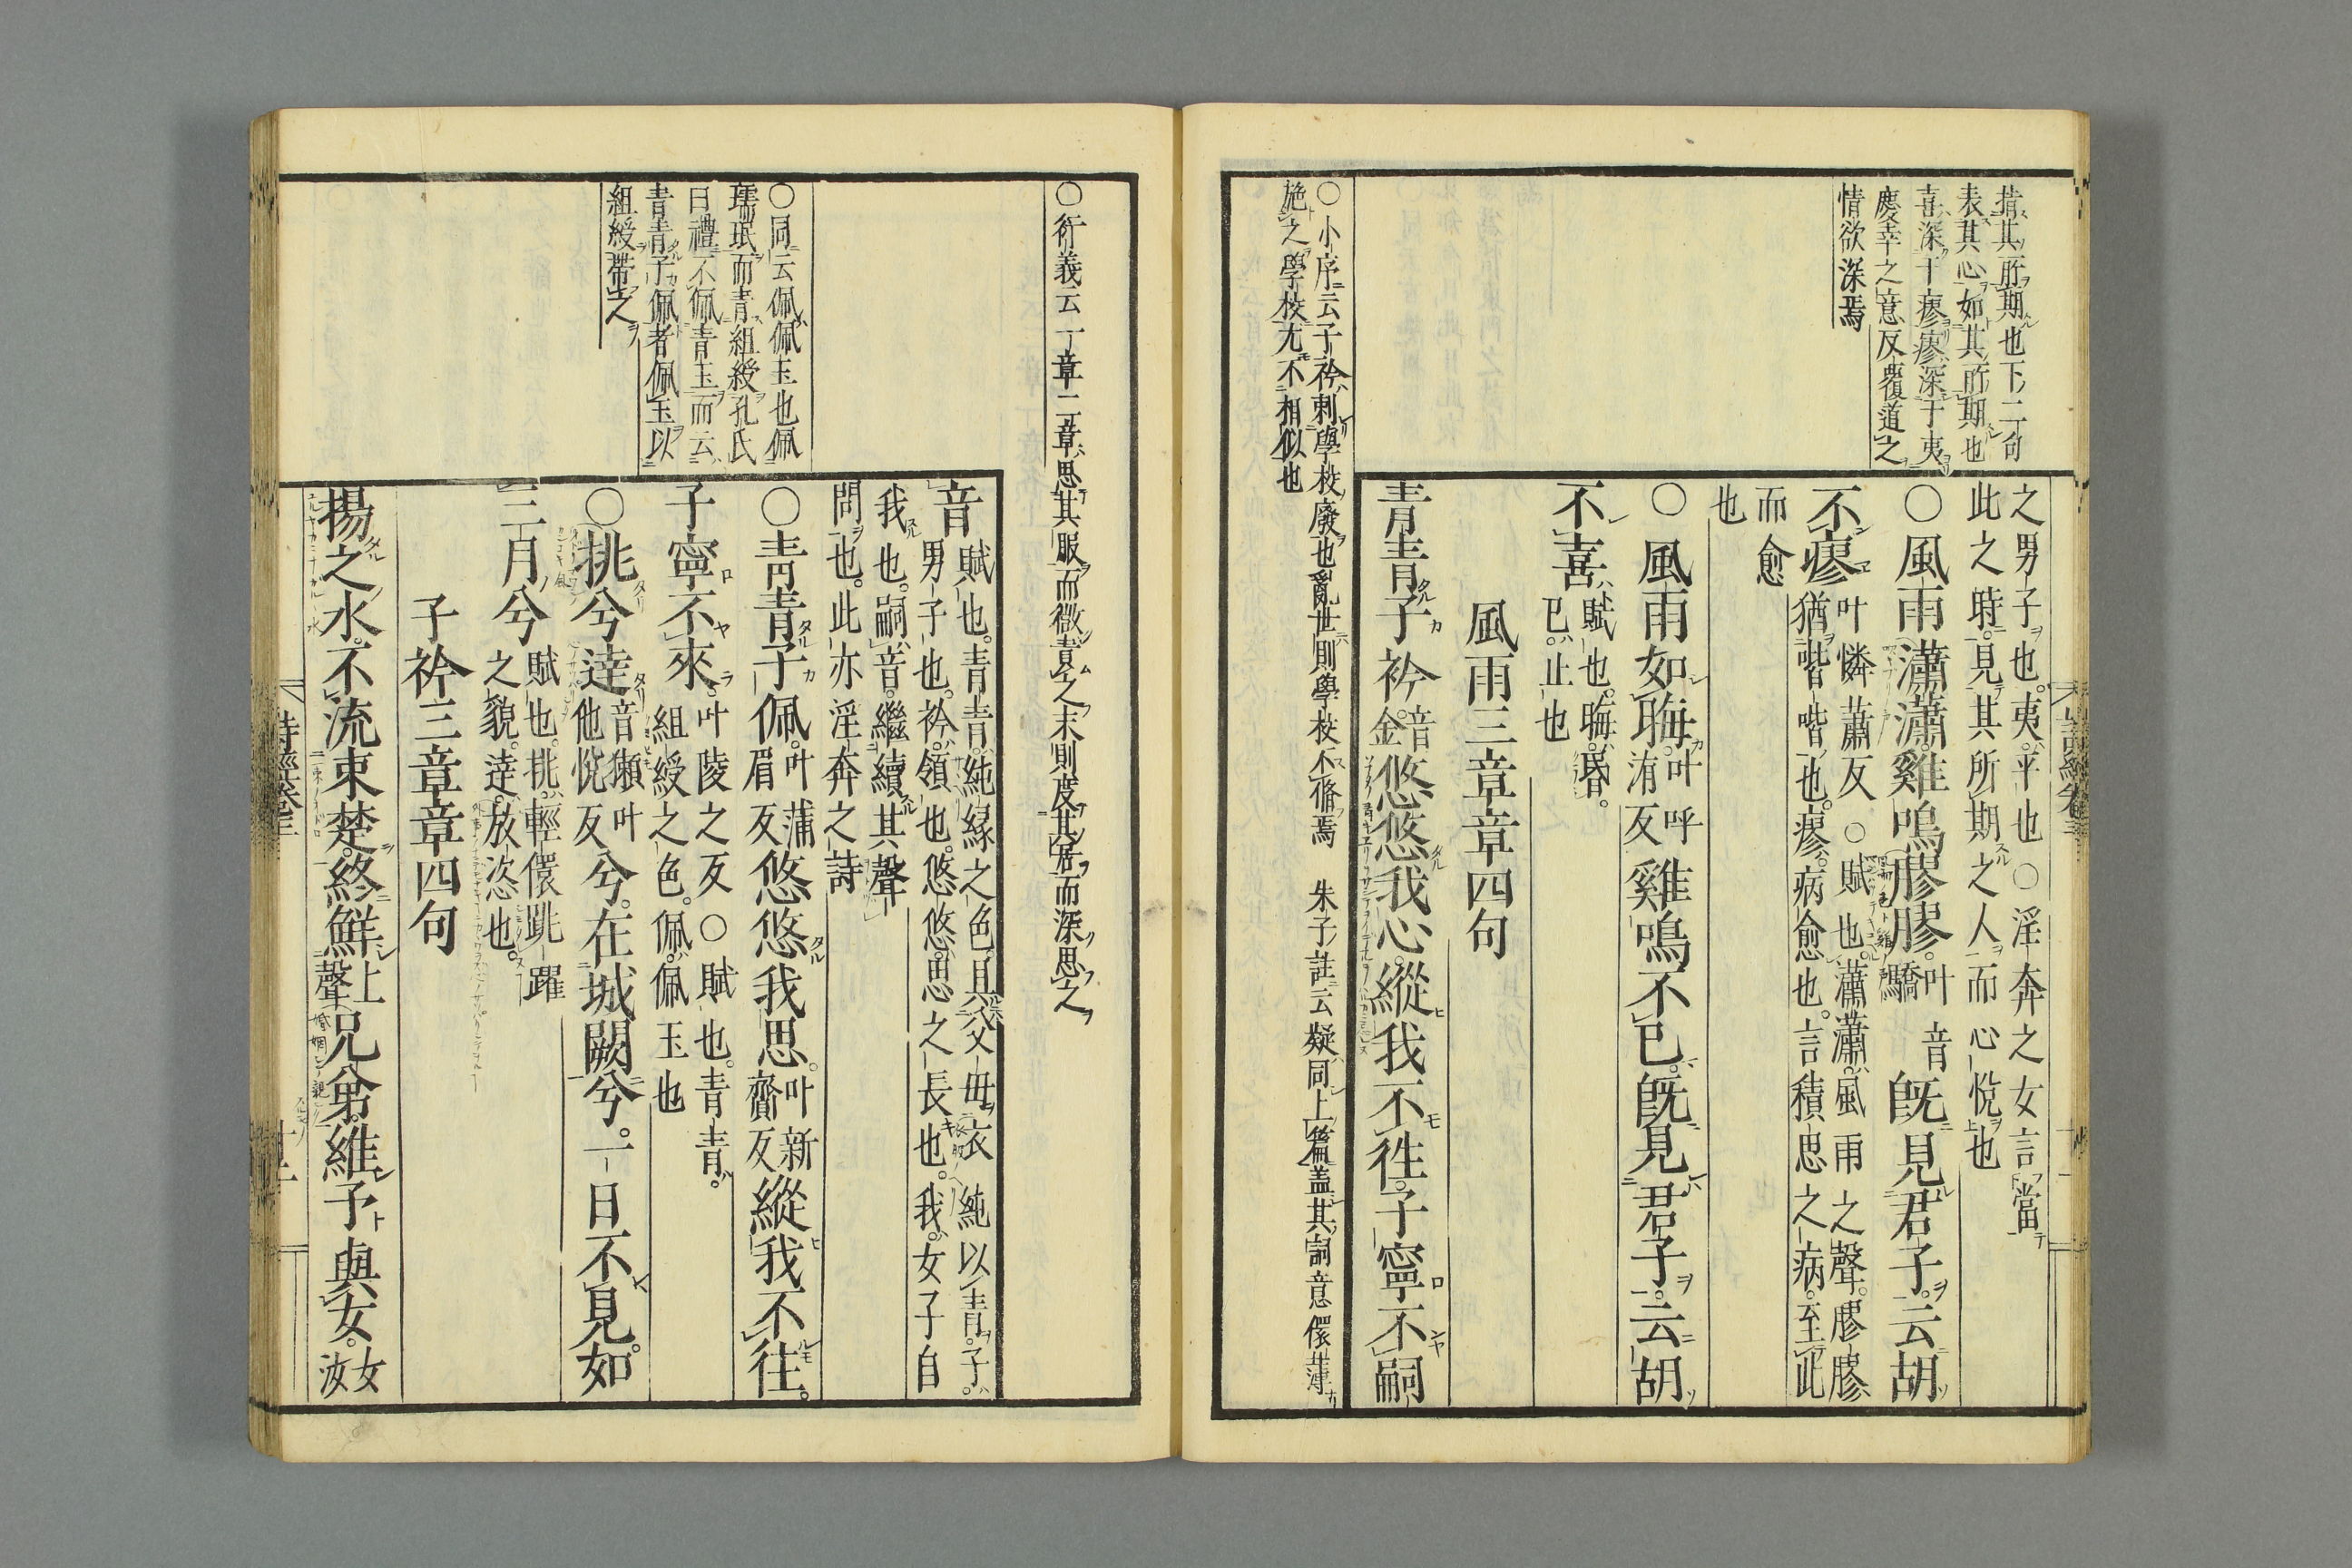 指其所期也下二句
表其心如其所期也
喜深于瘳瘳深于夷
慶幸之意反覆道之
情欲深焉
之男子也夷平也○淫奔之女言當
此之時見其所期之人而心悅也
○風雨瀟瀟雞鳴膠膠叶音驕既見君子云胡
不瘳叶憐蕭反○賦也瀟瀟風雨之聲膠膠
猶喈喈也瘳病愈也言積思之病至此
而愈
也
○風雨如晦叶呼洧反雞鳴不已既見君子云胡
不喜賦也晦昏
已止也
風雨三章章四句
青青子衿音金悠悠我心縱我不往子寧不嗣
○小序云子衿刺學校廢也亂世則學校不脩焉 朱子註云疑同上篇蓋其詞意儇薄
施之學校尤不相似也
○衍義云一章二章思其服而微責之末則度其居而深思之
音賦也青青純緣之色具父母衣純以青子
男子也衿領也悠悠思之長也我女子自
我也嗣音繼續其聲
問也此亦淫奔之詩
○同云佩佩玉也佩
瓀珉而青組綬孔氏
曰禮不佩青玉而云
青青子佩者佩玉以
組綬帶之
○青青子佩叶蒲眉反悠悠我思叶新齎反縱我不往
子寧不來叶陵之反○賦也青青
組綬之色佩佩玉也
○挑兮達音獺叶他悅反兮在城闕兮一日不見如
三月兮賦也挑輕儇跳躍
之貌達放恣也
子衿三章章四句
揚之水不流束楚終鮮上聲兄弟維予與女女汝
詩經卷三